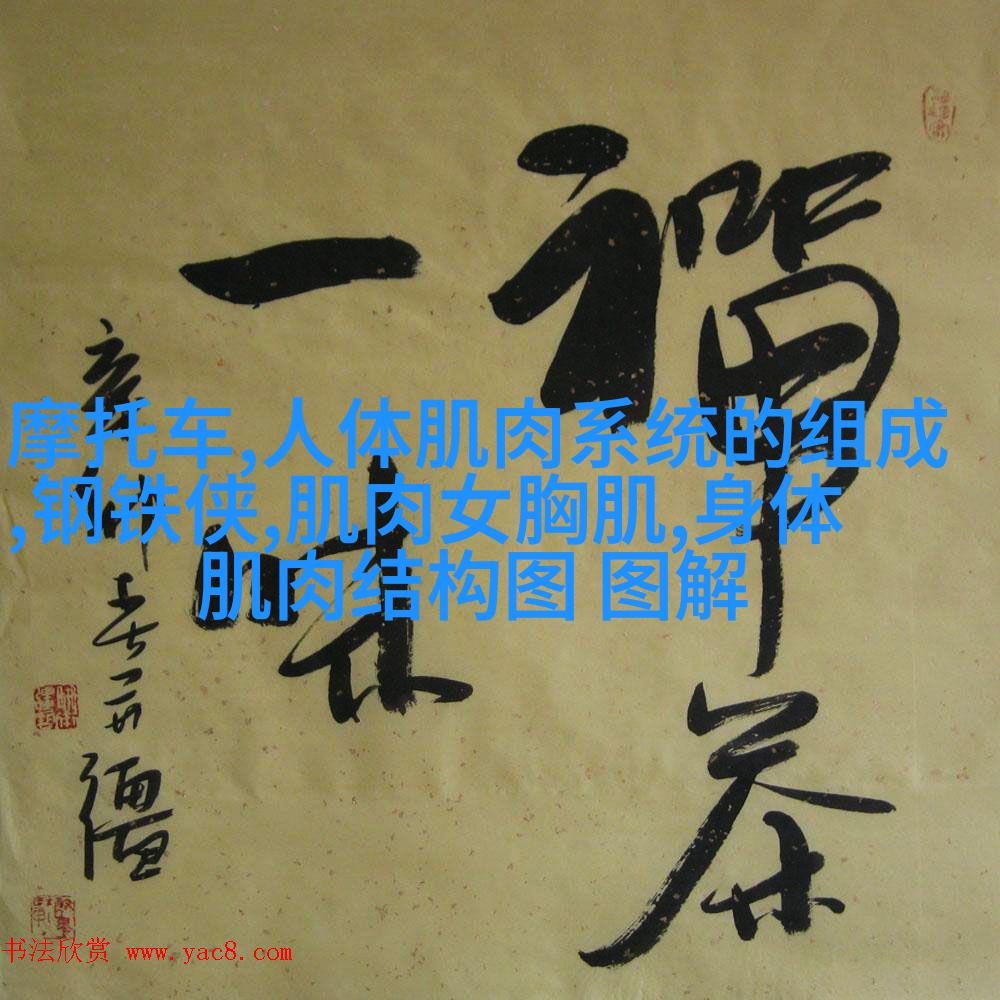 禅茶
一味
摩托车,人体肌肉系统的组成
,钢铁侠,肌肉女胸肌,身体
肌肉结构图 图解
书法欣赏 www.yac8.com